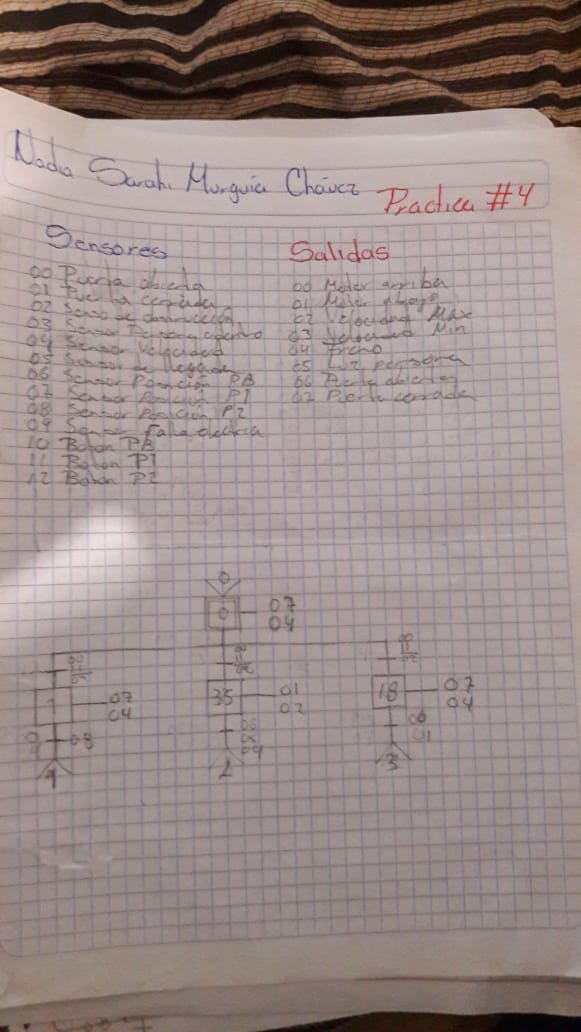 Nadia Sarahi Murguia Chávez
Practica #4
Sensores
00 Puerta abierta
01 Puerta cerrada
02 Senso de obstrucción
03 Sensor Persona adentro
04 Sensor Velocidad
05 Sensor de llegada
06 Sensor Posición PB
07 Sensor Posición P1
08 Sensor Posición P2
09 Sensor falla electrica
10 Boton PB
11 Boton P1
12 Boton P2
Salidas
00 Motor arriba
01 Motor abajo
02 Velocidad MAX
03 Velocidad Min
04 Freno
05 Luz persona
06 Puerta abierta
07 Puerta cerrada
0
0
07
04
1
07
04
08
35
01
02
06
05
04
2
18
07
04
06
3